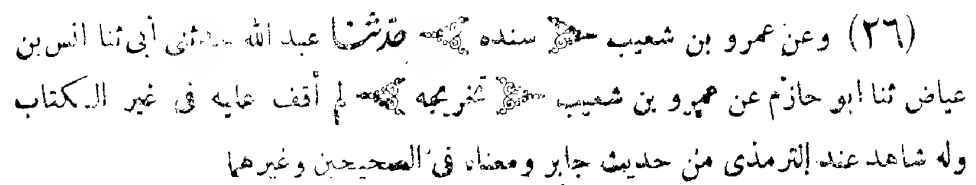 (٢٦) وعن عمرو بن شعيب ﴿ سنده ﴾ حدثنا عبد الله حدثنى أبى ثنا انس بن
عياض ثنا ابو حازم عن عمرو بن شعيب ﴿ تخريجه ﴾ لم أقف عليه فى غير الكتاب
وله شاهد عند الترمذى من حديث جابر ومعناه فى الصحيحين وغيرهما